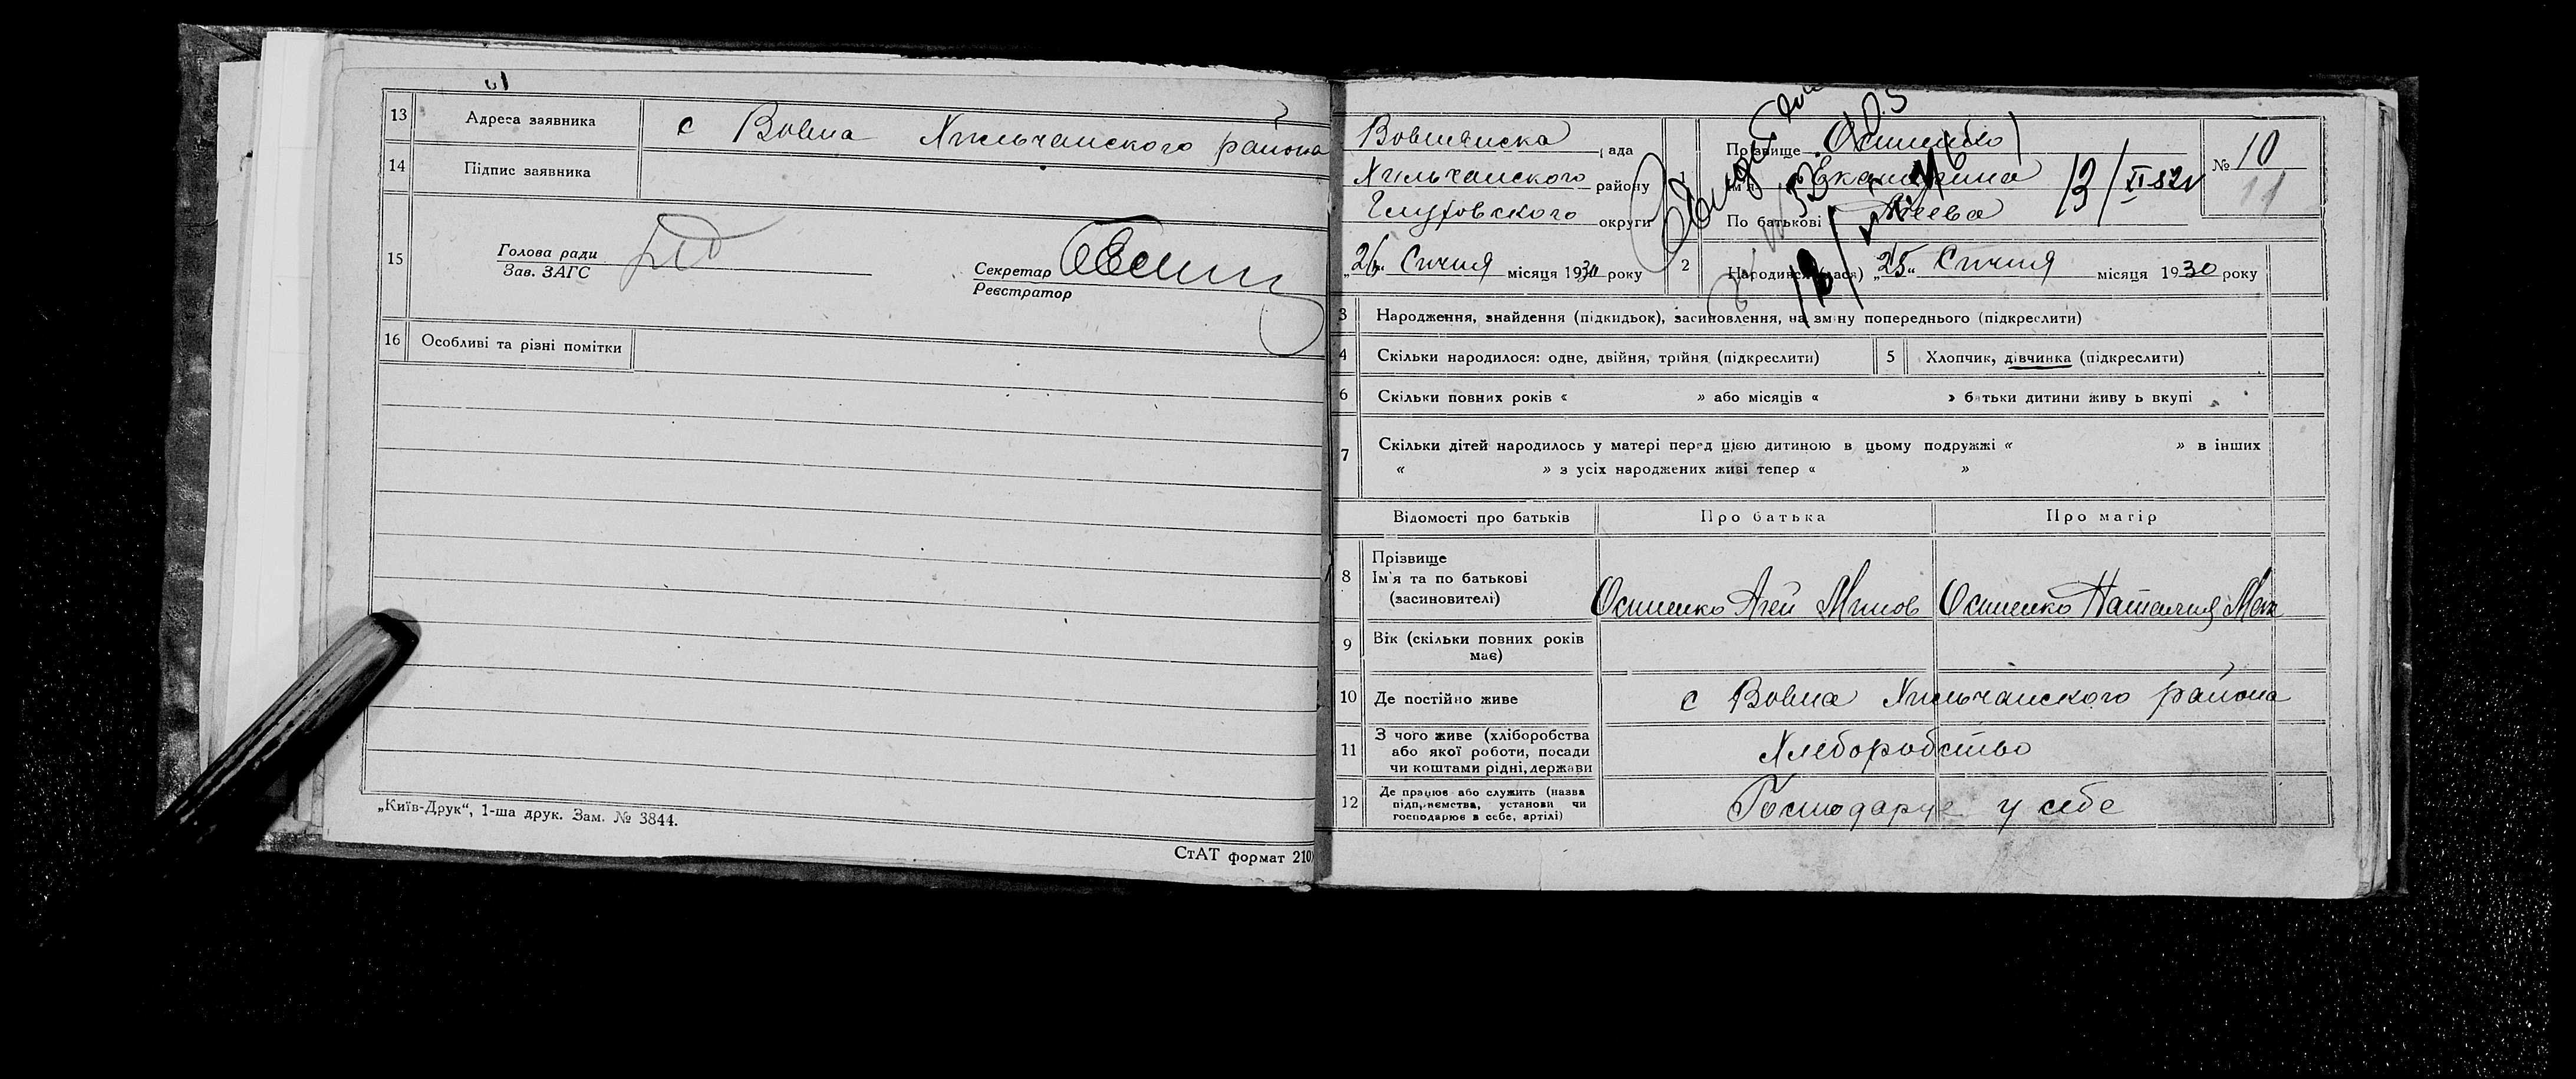 13 Адреса заявника с Вовна Хильчанского района
14 Підпис заявника
15 Голова ради
Зав. ЗАГС
Секретар
Реєстратор
16 Особливі та різні помітки
„Київ-Друк“, 1-ша друк. Зам. № 3844.
СтАТ формат 210
рада
Хильчанского району
Глуховского округи
„26“ Січня місяця 1930 року
1 Прізвище Осипенко
Ім'я Екатерина
По батькові Агеева
13/XI 82
№ 10
11
2 Народився (лася) „25“ Січня місяця 1930 року
3 Народження, знайдення (підкидьок), засиновлення, на зміну попереднього (підкреслити)
4 Скільки народилося: одне, двійня, трійня (підкреслити)
5 Хлопчик, дівчинка (підкреслити)
6 Скільки повних років « » або місяців « » батьки дитини живуть вкупі
7 Скільки дітей народилось у матері перед цією дитиною в цьому подружжі « » в інших
« » з усіх народжених живі тепер « »
Відомості про батьків Про батька Про матір
8 Прізвище
Ім'я та по батькові
(засиновителі)
Осипенко Агей Осипенко Наталия
9 Вік (скільки повних років
має)
10 Де постійно живе с Вовна Хильчанского района
11 З чого живе (хліборобства
або якої роботи, посади
чи коштами рідні, держави
Хлеборобство
12 Де працює або служить (назва
підприємства, установи чи
господарює в себе, артілі)
Господарує у себе